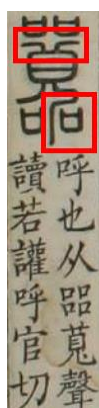 呼也从㗊萈聲
讀若讙呼官切